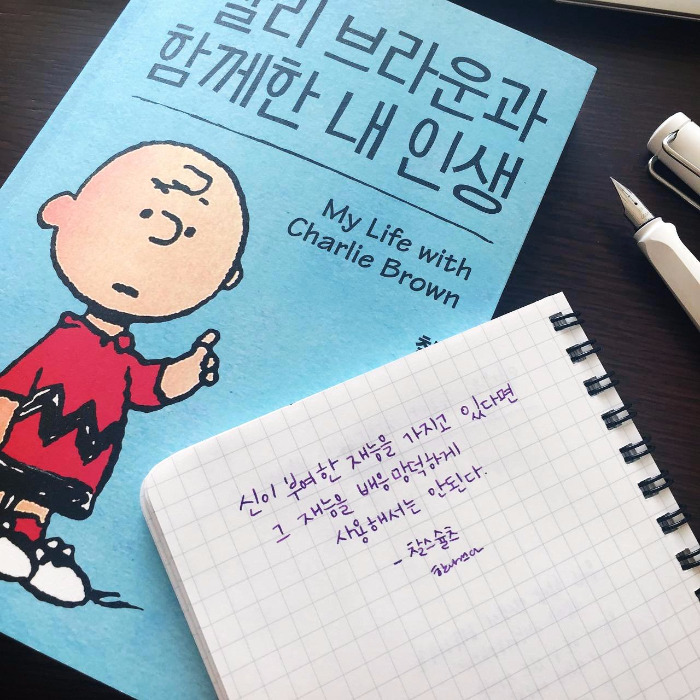 브라운과
함께한 내 인생
My Life with
Charlie Brown
신이 부여한 재능을 가지고 있다면
그 재능을 배응망덕하게
사용해서는 안된다.
- 찰스슐츠